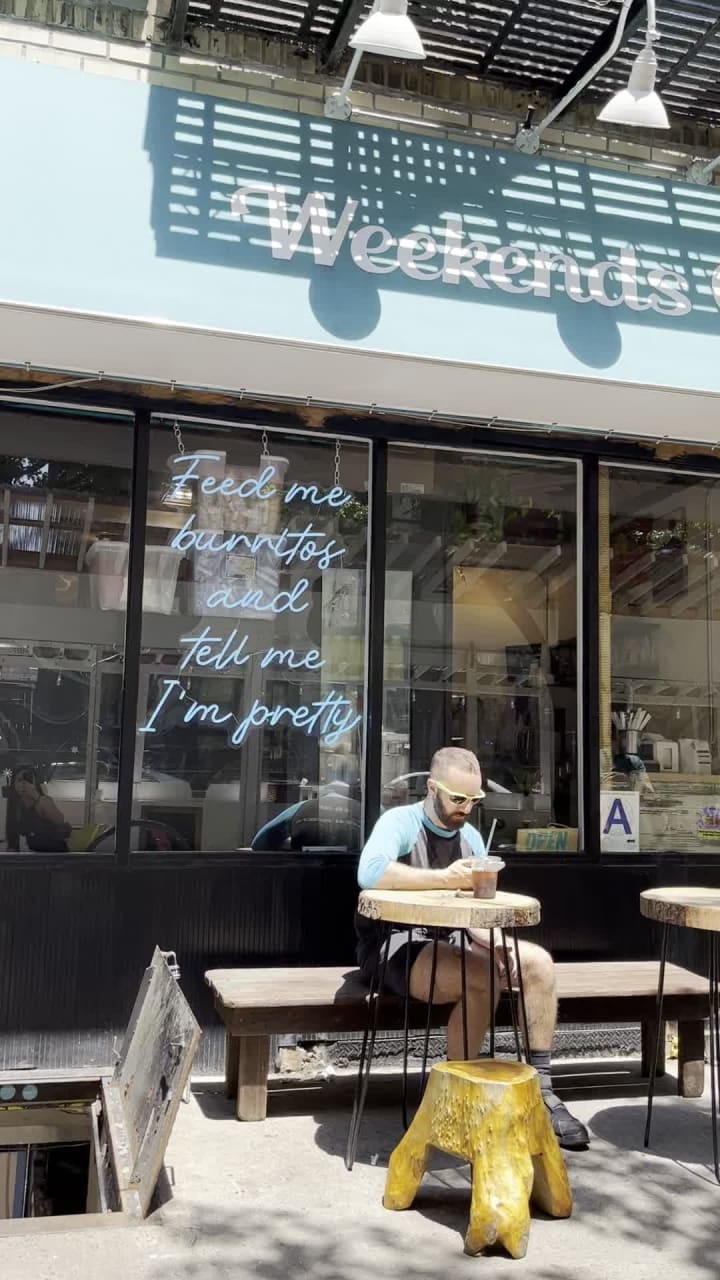 Weekends
Feed me
burritos
and
tell me
I'm pretty
OPEN
A